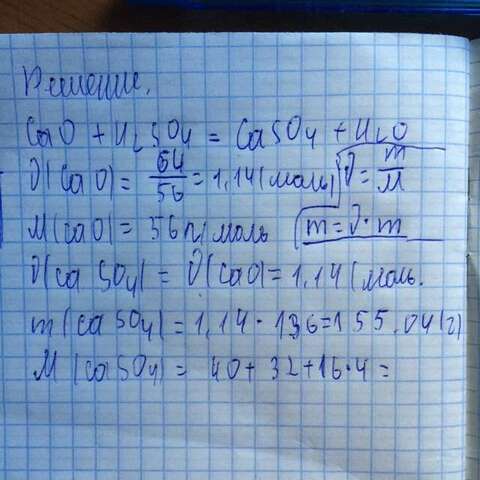 Решение.
CaO + H₂SO₄ = CaSO₄ + H₂O
ν(CaO) = 64/56 = 1,14 (моль) ν = m/M
M(CaO) = 56 г/моль m = ν · m
ν(CaSO₄) = ν(CaO) = 1,14 (моль.
m(CaSO₄) = 1,14 · 136 = 155.04 (г)
M(CaSO₄) = 40 + 32 + 16 · 4 =